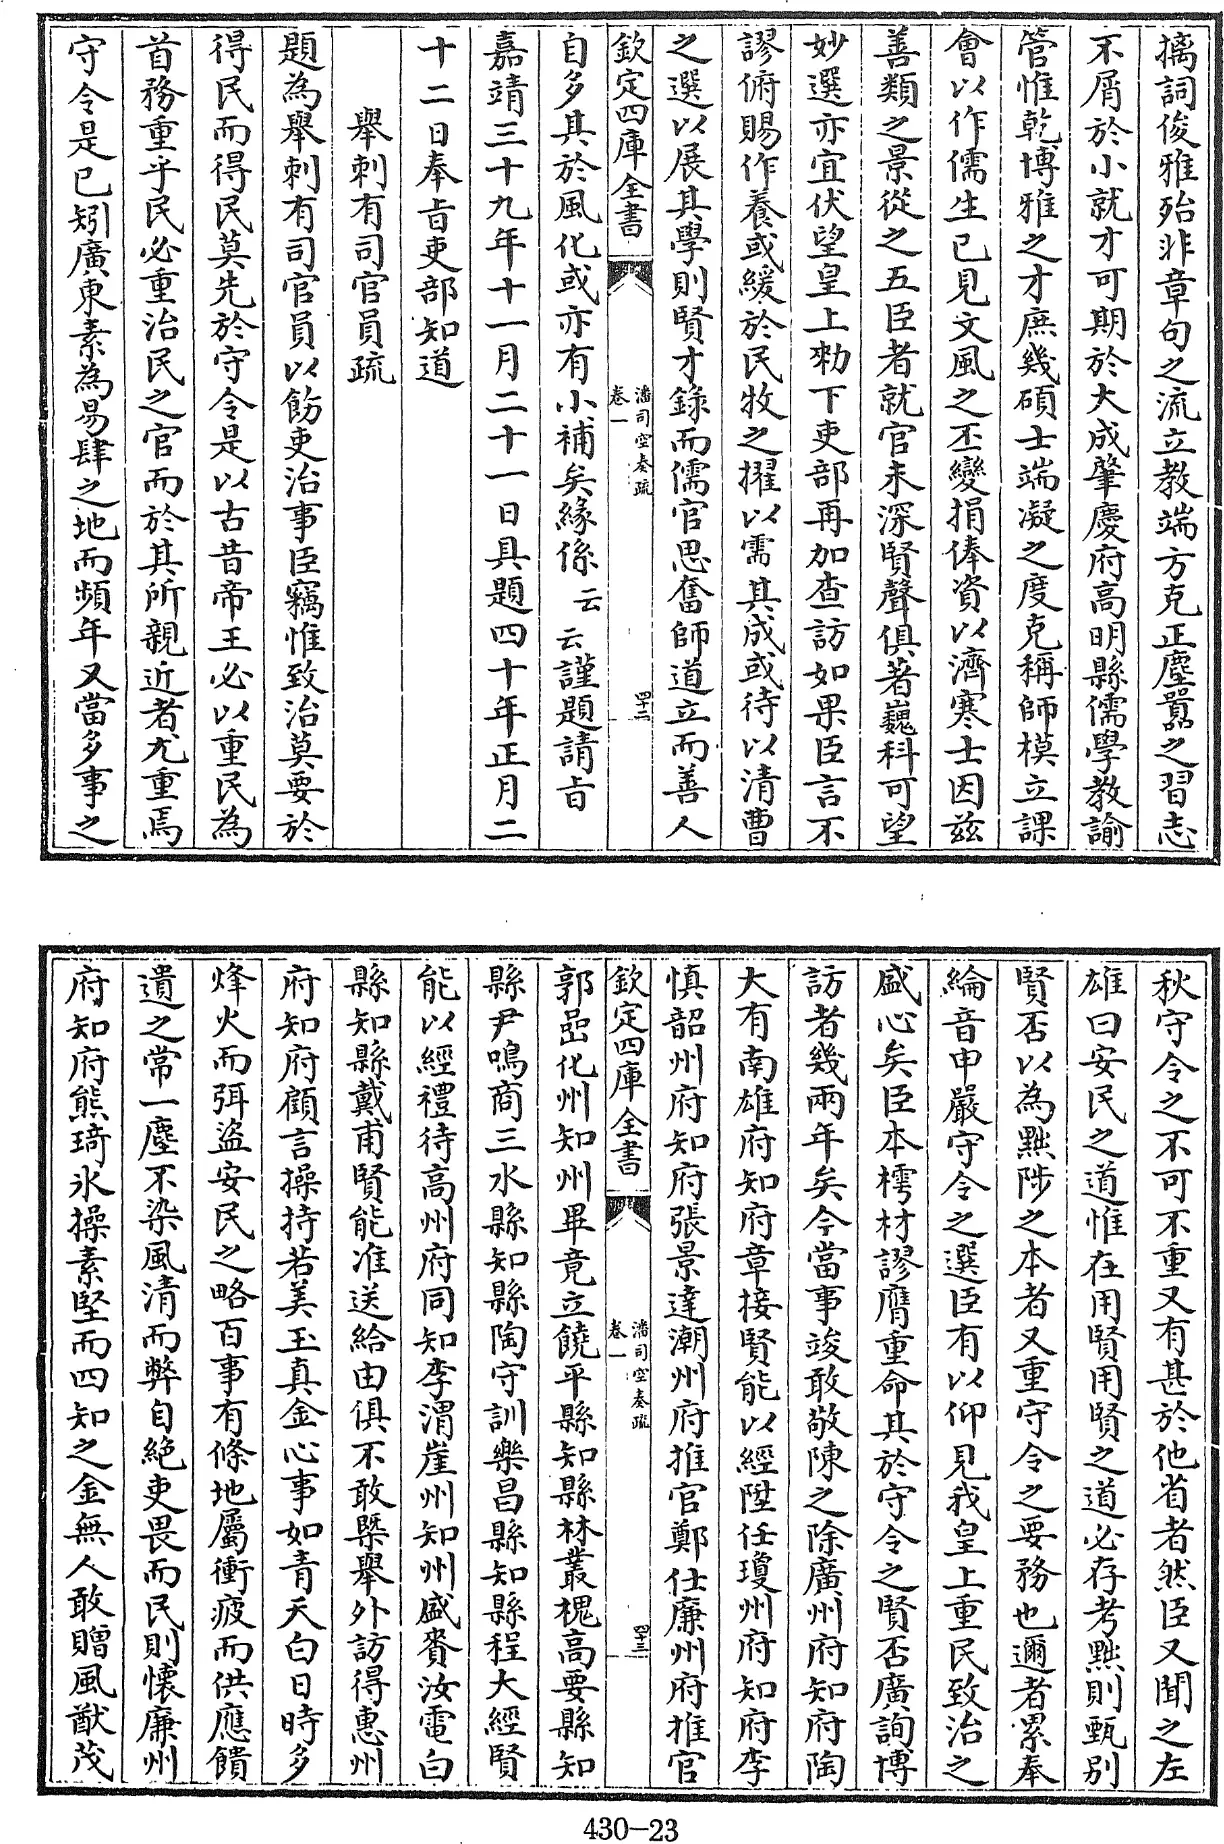 摛詞俊雅殆非章句之流立教端方克正塵囂之習志
不屑於小就才可期於大成肇慶府高明縣儒學教諭
管惟乾博雅之才庶幾碩士端凝之度克稱師模立課
會以作儒生已見文風之丕變捐俸資以濟寒士因兹
善類之景從之五臣者就官未深賢聲俱著巍科可望
妙選亦宜伏望皇上勑下吏部再加查訪如果臣言不
謬俯賜作養或緩於民牧之擢以需其成或待以清曹
之選以展其學則賢才錄而儒官思奮師道立而善人
欽定四庫全書
潘司空奏疏
卷一
四十二
自多其於風化或亦有小補矣緣係云云謹題請㫖
嘉靖三十九年十一月二十一日具題四十年正月二
十二日奉㫖吏部知道
舉刺有司官員疏
題為舉刺有司官員以飭吏治事臣竊惟致治莫要於
得民而得民莫先於守令是以古昔帝王必以重民為
首務重乎民必重治民之官而於其所親近者尤重焉
守令是已矧廣東素為易肆之地而頻年又當多事之
秋守令之不可不重又有甚於他省者然臣又聞之左
雄曰安民之道惟在用賢用賢之道必存考黜則甄别
賢否以為黜陟之本者又重守令之要務也邇者累奉
綸音申嚴守令之選臣有以仰見我皇上重民致治之
盛心矣臣本樗材謬膺重命其於守令之賢否廣詢博
訪者幾兩年矣今當事竣敢敬陳之除廣州府知府陶
大有南雄府知府章接賢能以經陞任瓊州府知府李
慎韶州府知府張景達潮州府推官鄭仕廉州府推官
欽定四庫全書
潘司空奏疏
卷一
四十三
郭嵒化州知州畢竟立饒平縣知縣林叢槐高要縣知
縣尹鳴商三水縣知縣陶守訓樂昌縣知縣程大經賢
能以經禮待高州府同知李渭崖州知州盛賚汝電白
縣知縣戴甫賢能准送給由俱不敢槩舉外訪得惠州
府知府顧言操持若美玉真金心事如青天白日時多
烽火而弭盜安民之略百事有條地屬衝疲而供應饋
遺之常一塵不染風清而弊自絶吏畏而民則懷廉州
府知府熊琦氷操素堅而四知之金無人敢贈風猷茂
430-23